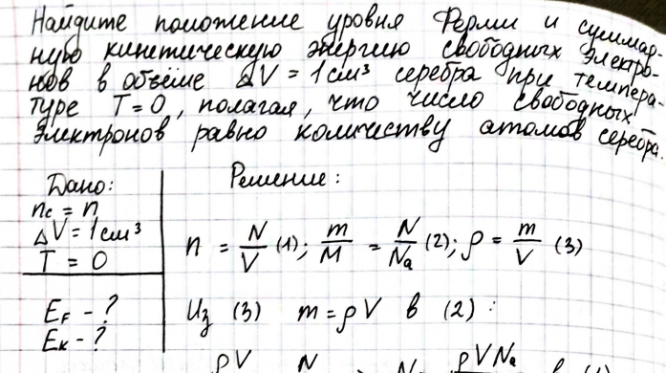 Найдите положение уровня Ферми и суммар-
ную кинетическую энергию свободных электро-
нов в объёме ΔV = 1 см³ серебра при темпера-
туре T = 0, полагая, что число свободных
электронов равно количеству атомов серебра.
Дано: Решение:
nc = n
ΔV = 1 см³
T = 0
n = N/V (1); m/M = N/Na (2); ρ = m/V (3)
EF - ?
Eк - ?
Из (3) m = ρV в (2):
ρV N ρVNa